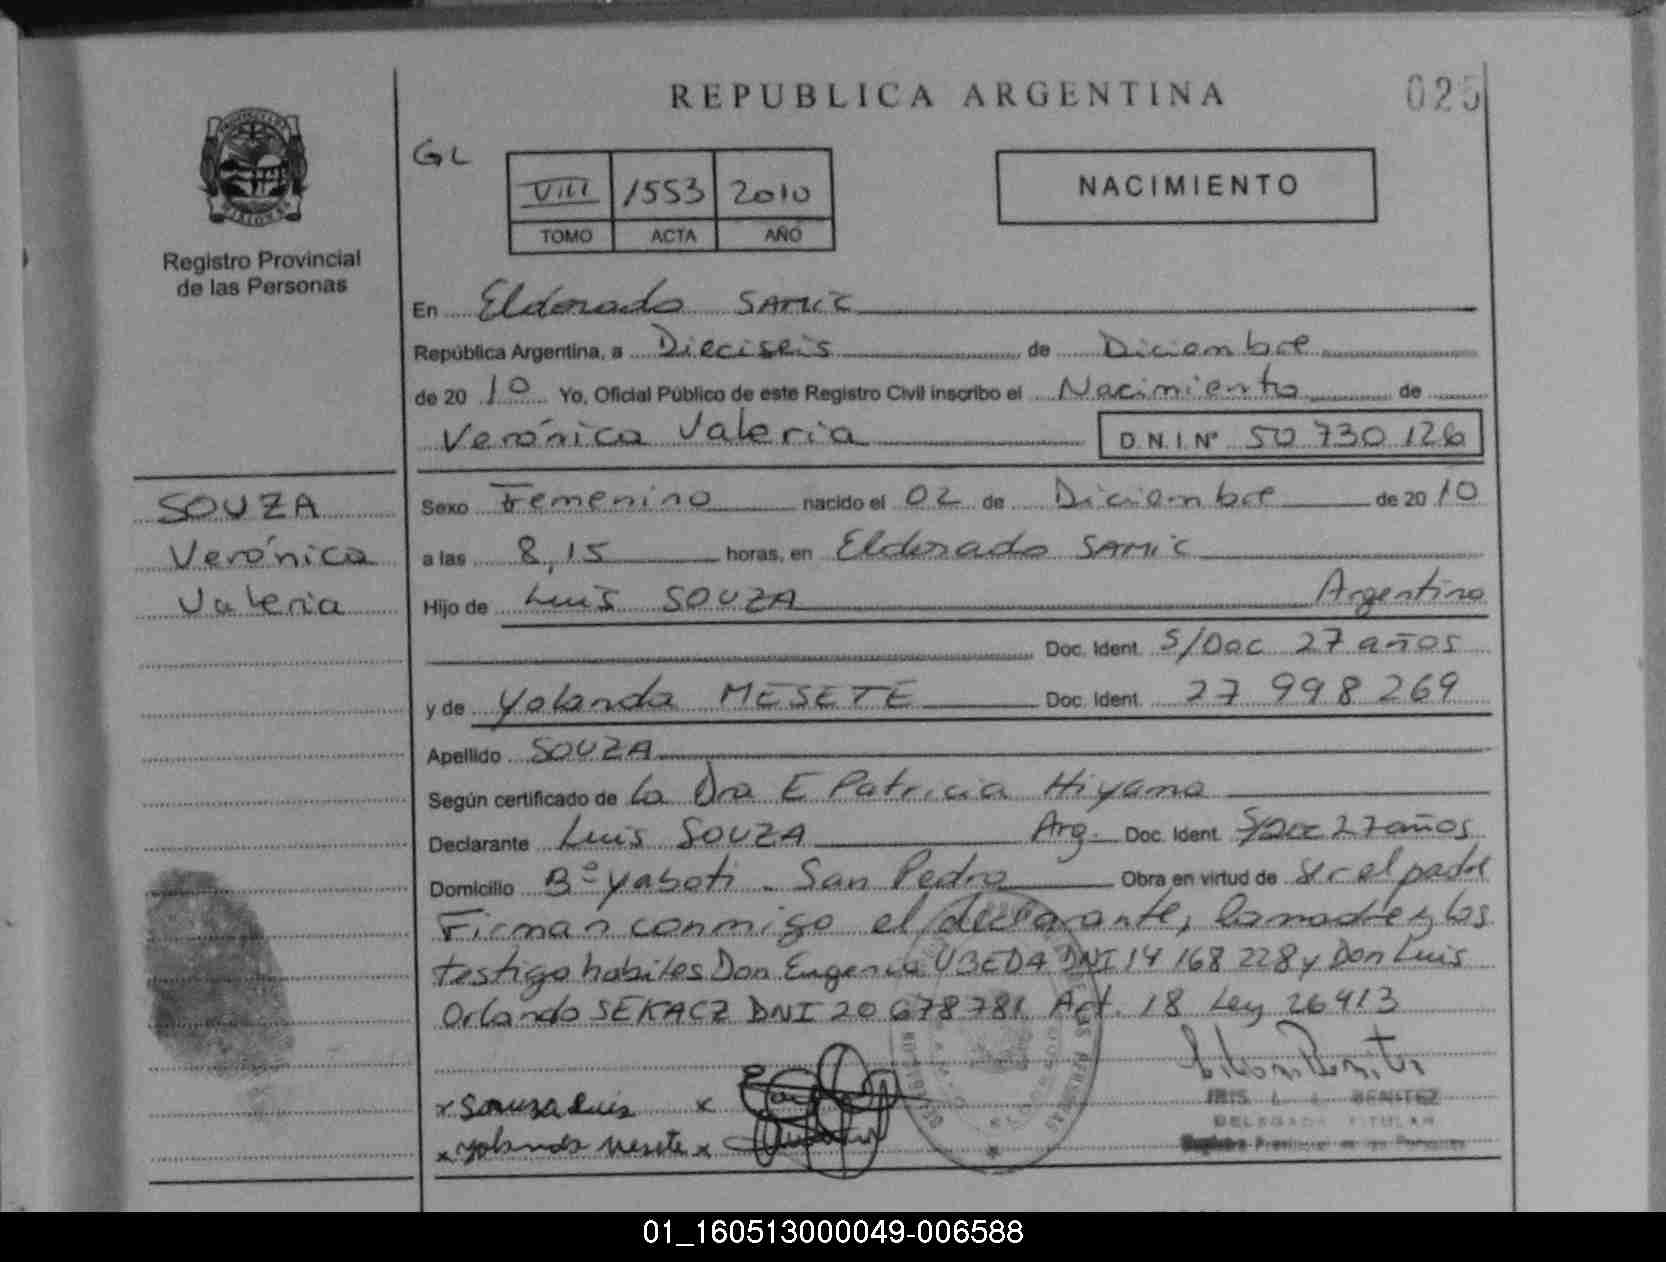 REPUBLICA ARGENTINA
025
GL
VIII 1553 2010
TOMO ACTA AÑO
NACIMIENTO
Registro Provincial
de las Personas
En Eldorado SAMIC
República Argentina, a Dieciseis de Diciembre
de 2010 Yo, Oficial Público de este Registro Civil inscribo el Nacimiento de
Verónica Valeria D.N.I. Nº 50 730 126
SOUZA
Verónica
Valeria
Sexo Femenino nacido el 02 de Diciembre de 2010
a las 8,15 horas, en Eldorado SAMIC
Hijo de Luis SOUZA Argentino
Doc. Ident. S/Doc 27 años
y de Yolanda MESETE Doc. Ident. 27 998 269
Apellido SOUZA
Según certificado de la Dra E Patricia Hiyama
Declarante Luis SOUZA Arg. Doc. Ident. S/Doc 27 años
Domicilio Bº Yaboti - San Pedro Obra en virtud de ser el padre
Firman conmigo el declarante, la madre y los
testigo habiles Don Eugenio UBEDA DNI 14 168 228 y Don Luis
Orlando SEKACZ DNI 20 678 781 Art. 18 Ley 26413
x Souza Luis x
x Yolanda Mesete x
IRIS BENITEZ
DELEGADA TITULAR
Registro Provincial de las Personas
01_160513000049-006588